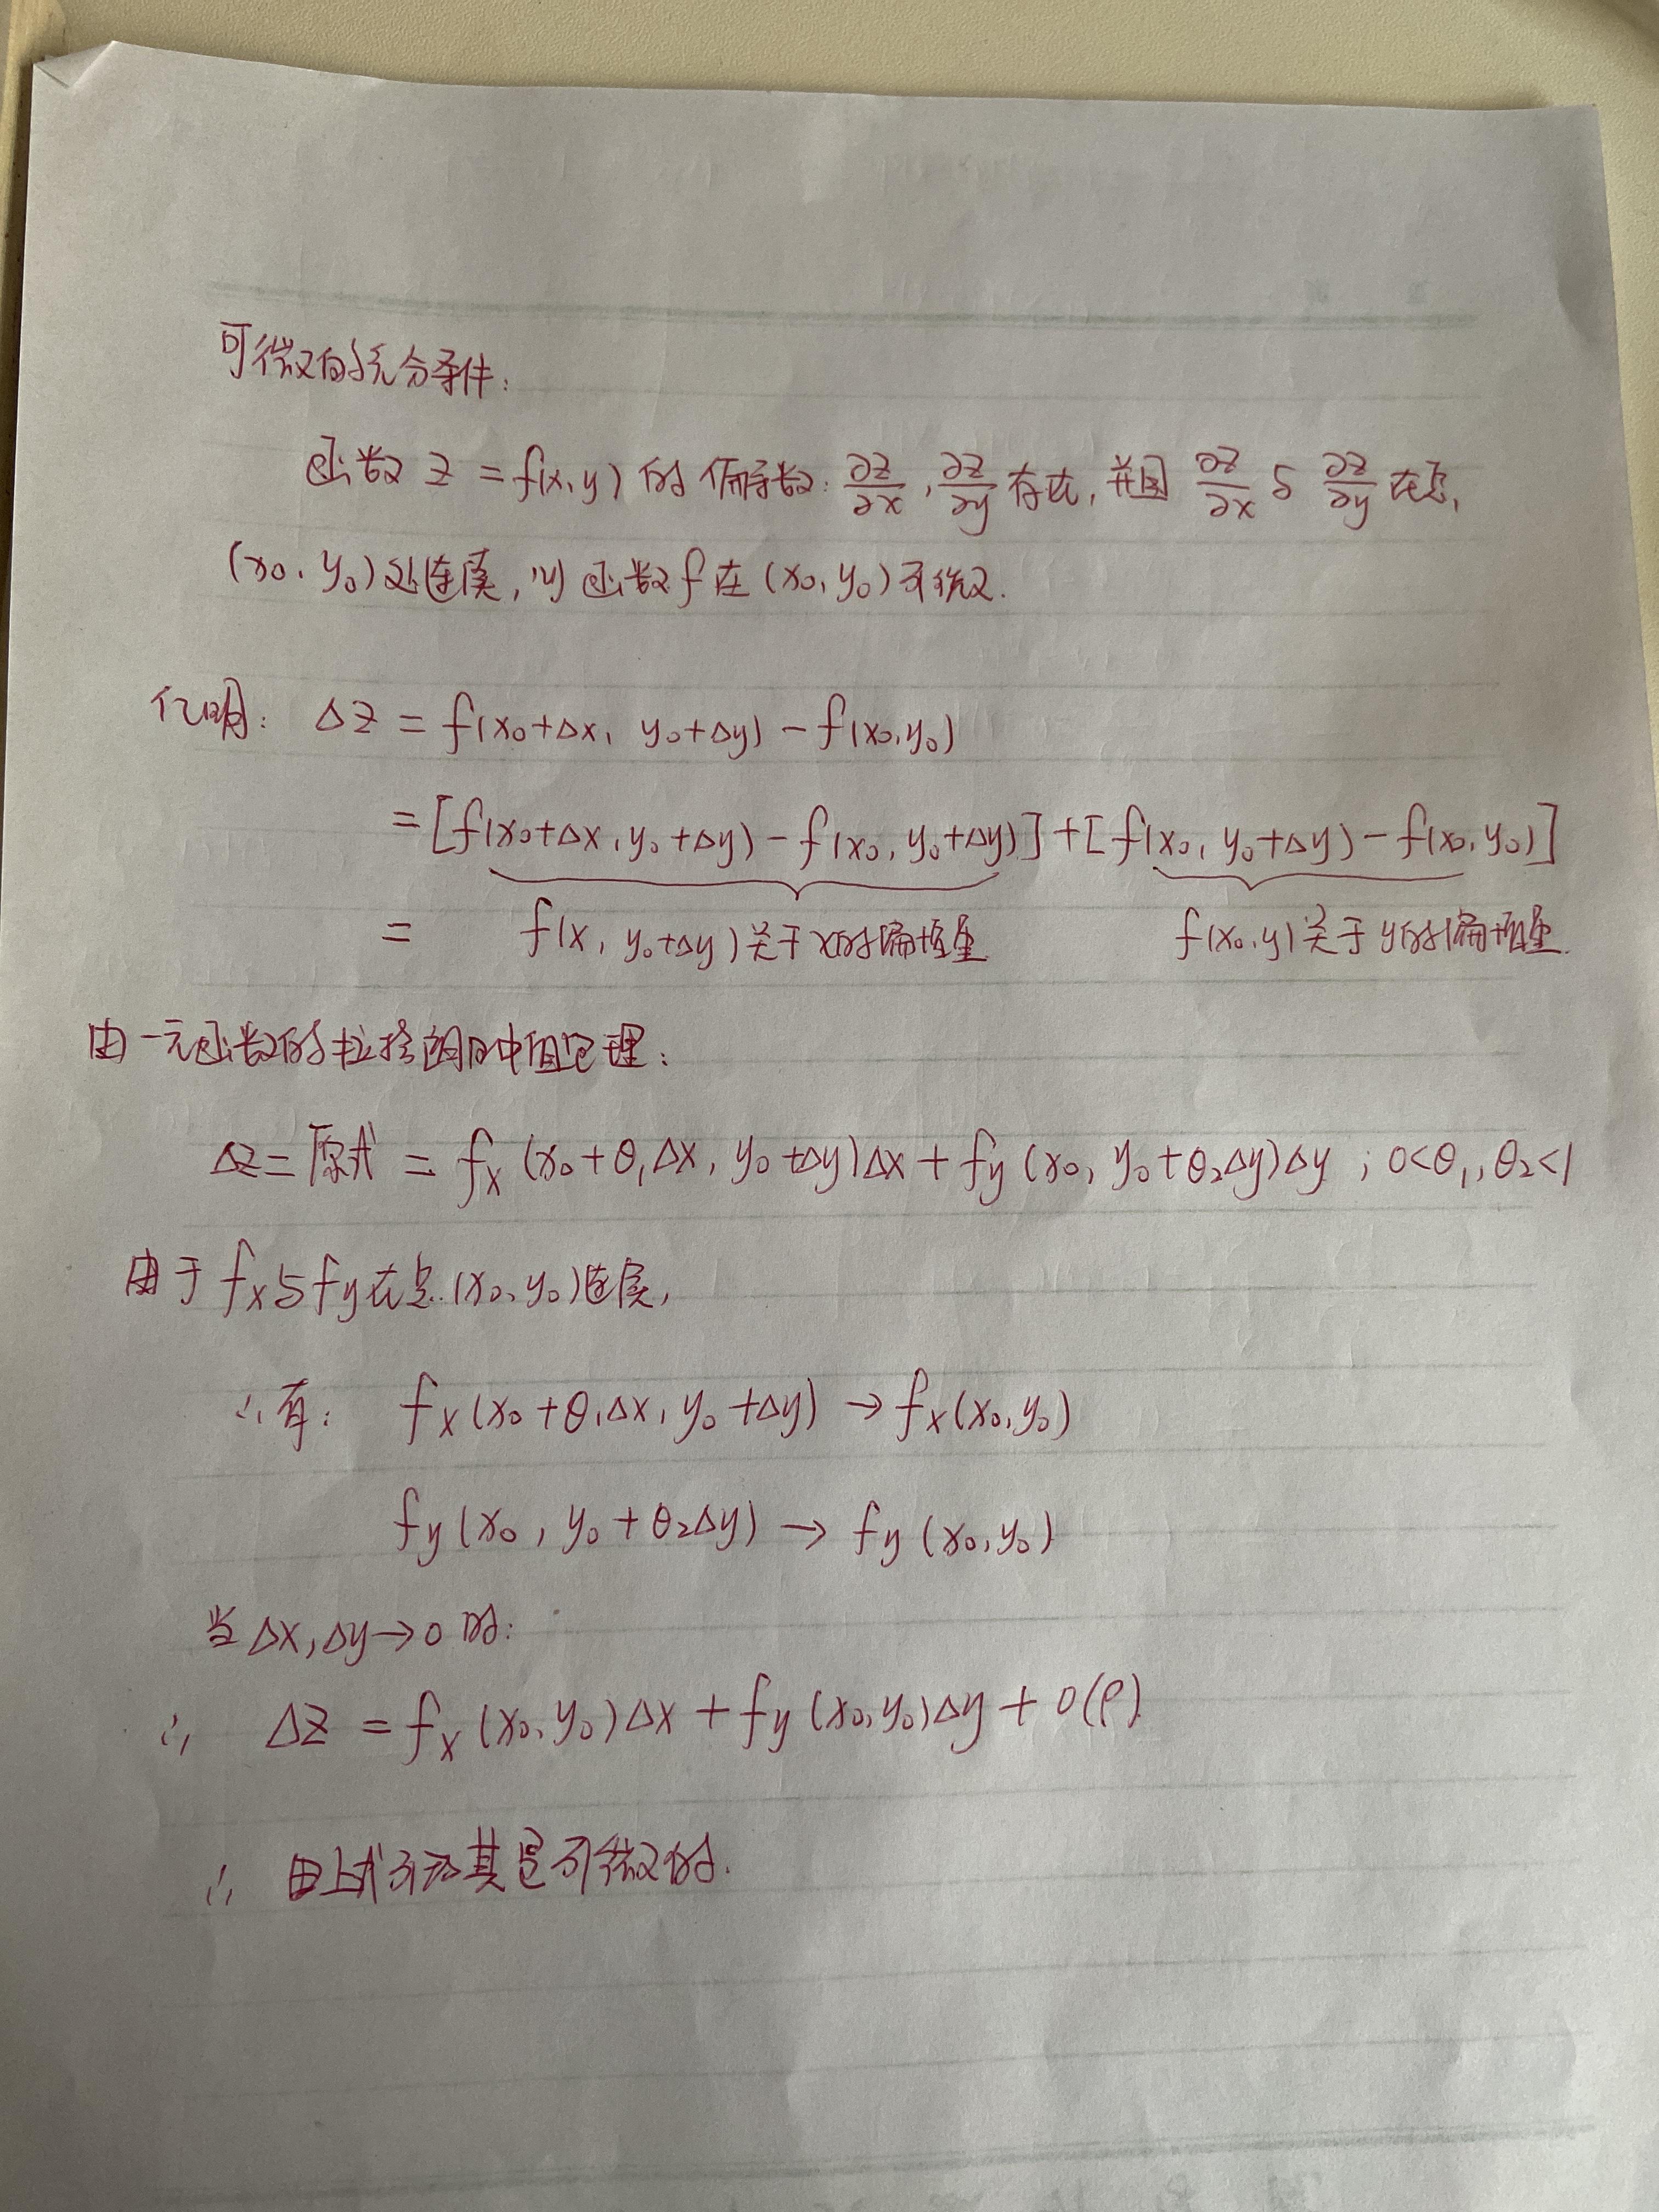 可微的充分条件:
函数 z = f(x,y) 的偏导数: ∂z/∂x, ∂z/∂y 存在, 并且 ∂z/∂x 与 ∂z/∂y 在点,
(x₀, y₀) 处连续, 则函数 f 在 (x₀, y₀) 可微.
证明: Δz = f(x₀+Δx, y₀+Δy) − f(x₀,y₀)
= [f(x₀+Δx, y₀+Δy) − f(x₀, y₀+Δy)] + [f(x₀, y₀+Δy) − f(x₀, y₀)]
= f(x, y₀+Δy) 关于 x的偏增量 f(x₀,y) 关于 y的偏增量.
由一元函数的拉格朗日中值定理:
Δz = 原式 = fₓ (x₀+θ₁Δx, y₀+Δy)Δx + f_y (x₀, y₀+θ₂Δy)Δy ; 0<θ₁,θ₂<1
由于 fₓ与f_y在点 (x₀,y₀)连续,
∴有: fₓ(x₀+θ₁Δx, y₀+Δy) → fₓ(x₀,y₀)
f_y(x₀, y₀+θ₂Δy) → f_y(x₀,y₀)
当 Δx,Δy→0 时:
∴ Δz = fₓ(x₀,y₀)Δx + f_y(x₀,y₀)Δy + o(ρ)
∴ 由上式可知其是可微的.